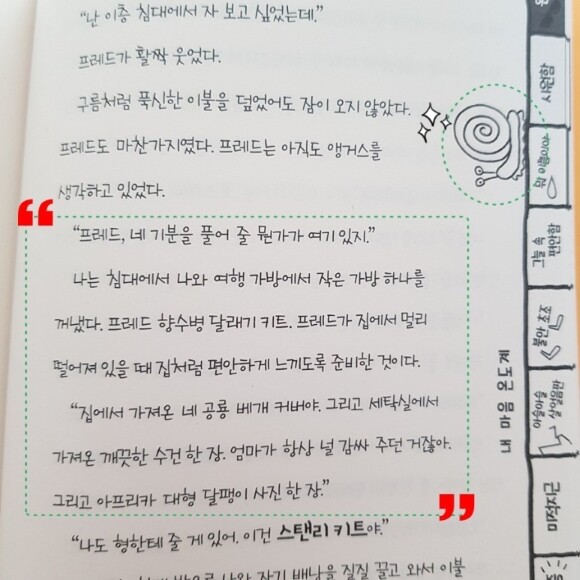 “난 이층 침대에서 자 보고 싶었는데.”
프레드가 활짝 웃었다.
구름처럼 푹신한 이불을 덮었어도 잠이 오지 않았다.
프레드도 마찬가지였다. 프레드는 아직도 앵거스를
생각하고 있었다.
“프레드, 네 기분을 풀어 줄 뭔가가 여기 있지.”
나는 침대에서 나와 여행 가방에서 작은 가방 하나를
꺼냈다. 프레드 향수병 달래기 키트. 프레드가 집에서 멀리
떨어져 있을 때 집처럼 편안하게 느끼도록 준비한 것이다.
“집에서 가져온 네 공룡 베개 커버야. 그리고 세탁실에서
가져온 깨끗한 수건 한 장. 엄마가 항상 널 감싸 주던 거잖아.
그리고 아프리카 대형 달팽이 사진 한 장.”
“나도 형한테 줄 게 있어. 이건 스탠리 키트야.”
나와 자기 배낭을 질질 끌고 와서 이불
내 마음 온도계
편안함